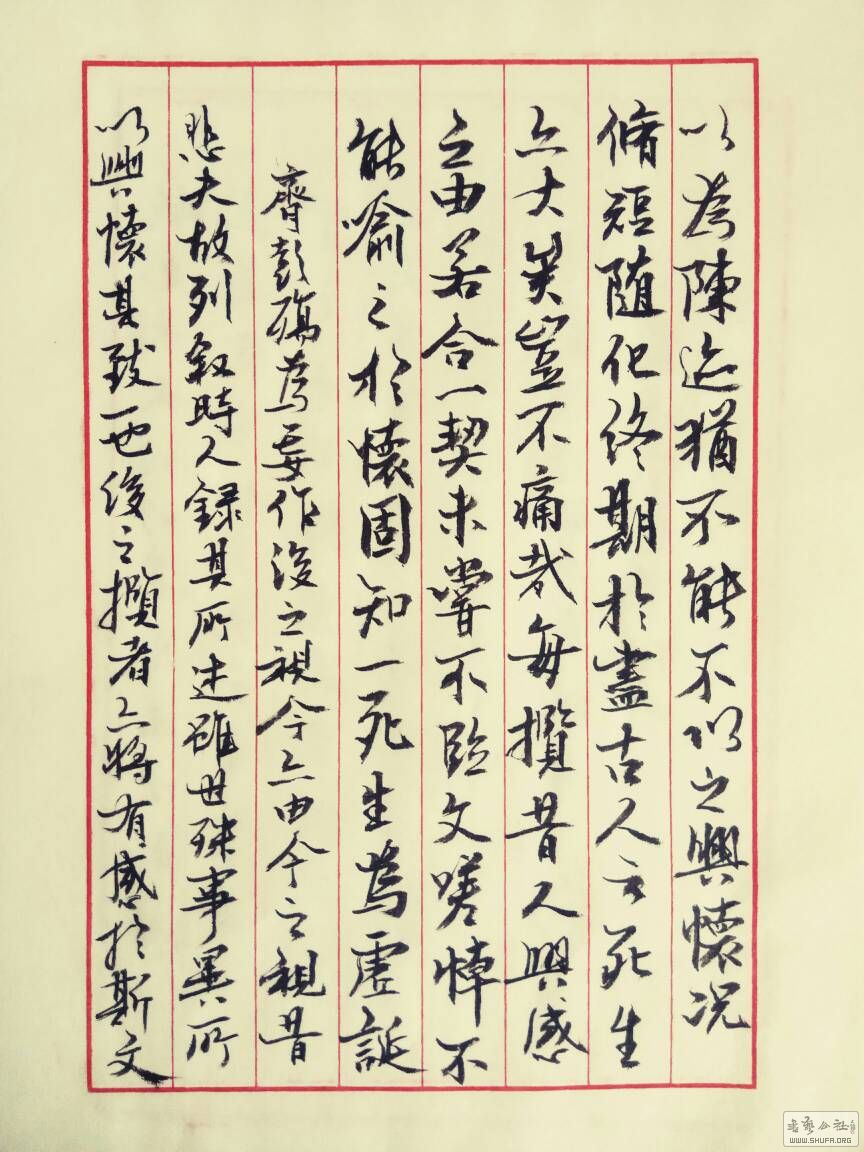 以為陳迹猶不能不以之興懷况
脩短随化終期於盡古人云死生
亦大矣豈不痛哉每攬昔人興感
之由若合一契未嘗不臨文嗟悼不
能喻之於懷固知一死生為虛誕
齊彭殤為妄作後之視今亦由今之視昔
悲夫故列敘時人錄其所述雖世殊事異所
以興懷其致一也後之攬者亦將有感於斯文
書藝公社
WWW.SHUFA.ORG